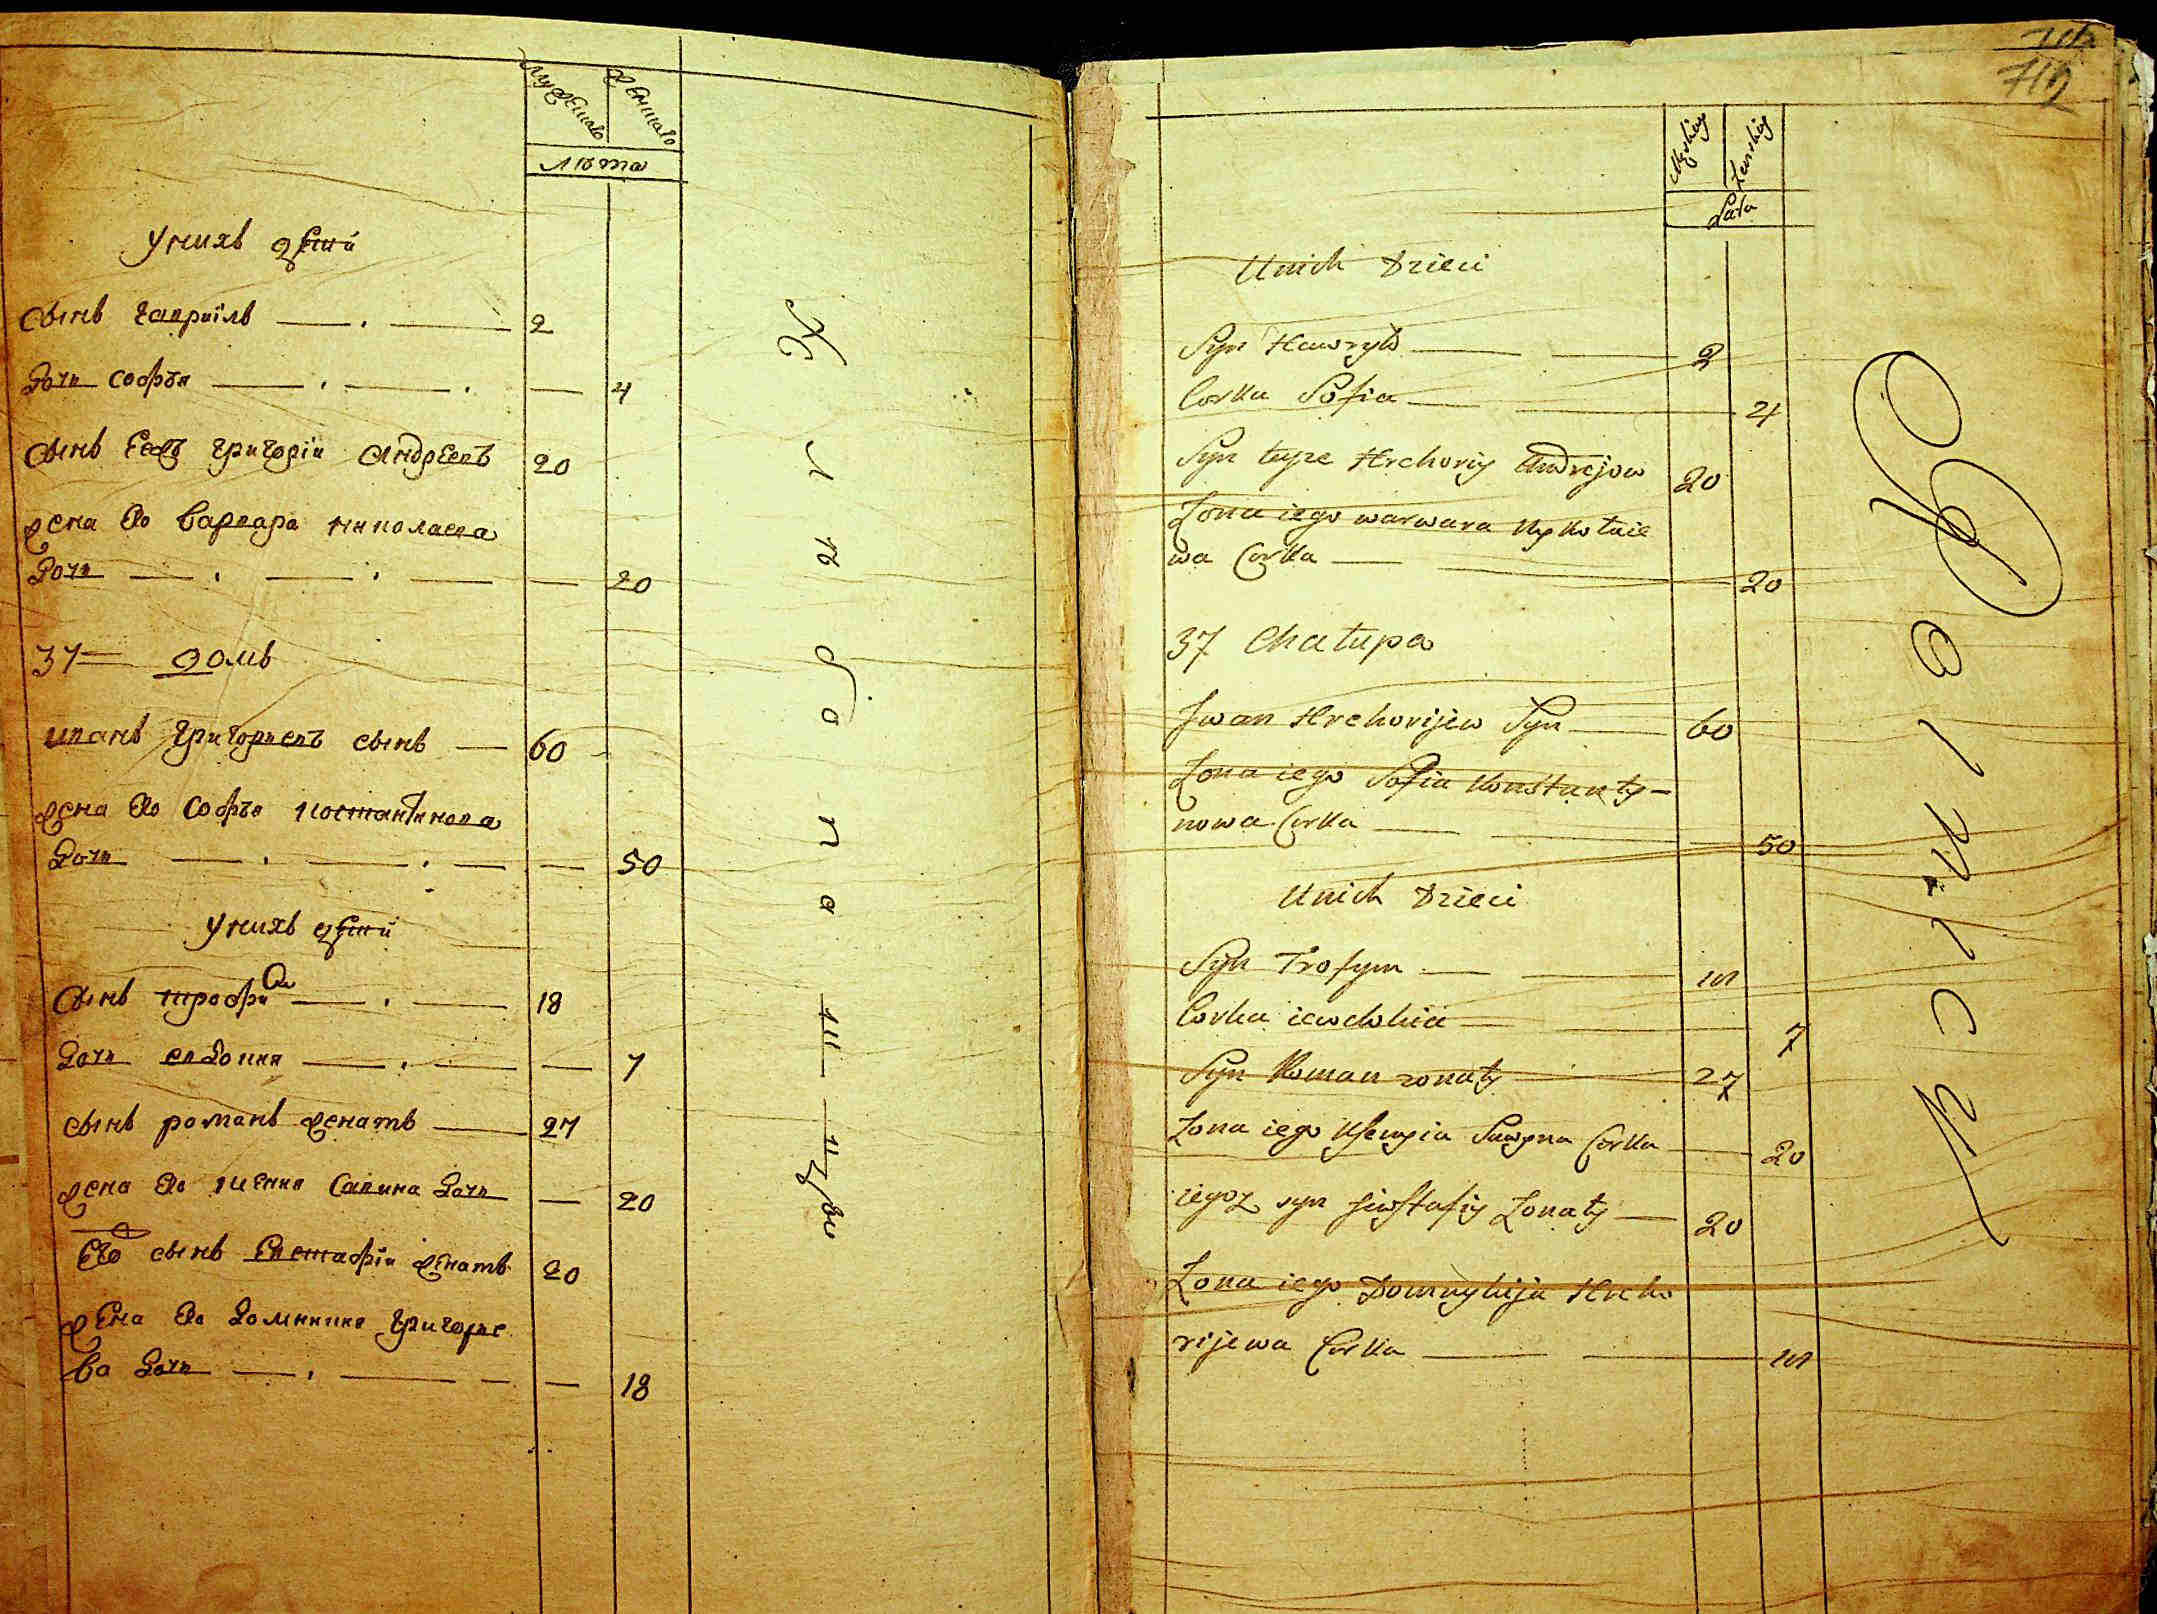 Мужеска
Женска
Лѣта
У нихъ дѣти
Сынъ Гавриілъ — . — 2
Дочь Софья — . — . — 4
Сынъ Григорій Андреевъ 20
Жена его Варвара Николаева
Дочь — . — . — — 20
37 — домъ
Иванъ Григорьевъ сынъ — 60
Жена его Софья Костантинова
Дочь — . — . — — 50
У нихъ дѣти
Сынъ Трофим — . — 18
Дочь Евдокия — . — — 7
Сынъ Романъ женатъ — 27
Жена его Ксения Савина дочь — 20
Его сынъ Евстафій женатъ 20
Жена его Домникия Григорье
ва дочь — . — — — 18
Męskiey
Żenskiey
Lata
Unich Dzieci
Syn Hawryło — — 2
Corka Sofia — — 4
Syn tegże Hrehoriy Andrejow 20
Zona iego warwara Mykołaie
wa Corka — — 20
37 Chałupa
Jwan Hrehorijew Syn — 60
Zona iego Sofia Konstanty-
nowa Corka — — 50
Unich Dzieci
Syn Trofym — — 18
Corka iewdokia — — 7
Syn Roman zonaty — 27
Zona iego Ksenyia Sawyna Corka — 20
iegoż syn Jewstafiy Zonaty — 20
Zona iego Domnykija Hreho
rijewa Corka — — 18